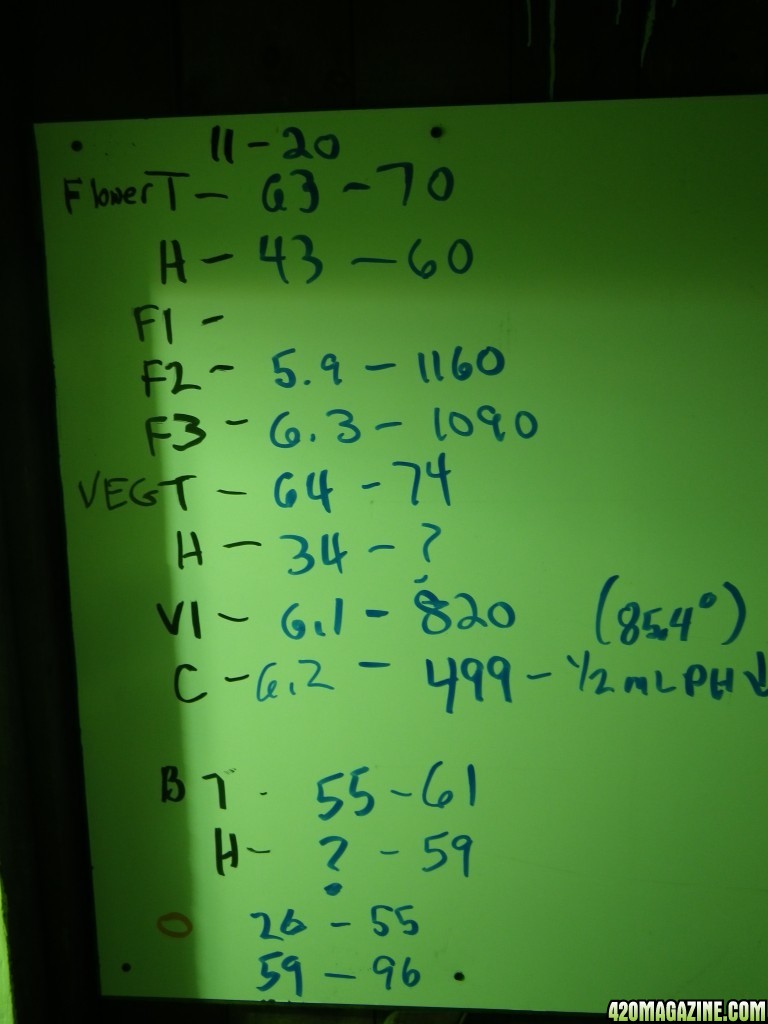 11-20
Flower T - 63 - 70
H - 43 - 60
F1 -
F2 - 5.9 - 1160
F3 - 6.3 - 1090
VEG T - 64 - 74
H - 34 - ?
V1 - 6.1 - 820 (85.4°)
C - 6.2 - 499 - 1/2 mL PH ↓
B T - 55 - 61
H - ? - 59
O 26 - 55
59 - 96
420MAGAZINE.COM